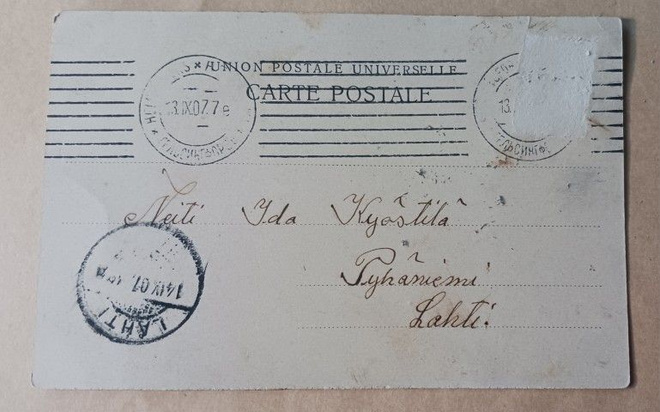 UNION POSTALE UNIVERSELLE
CARTE POSTALE
13.IX.07.7e
ГЕЛЬСИНГФОРС
13.
Neiti Ida Kyöstilä
Pyhäniemi
Lahti.
14 IX 07
LAHTI